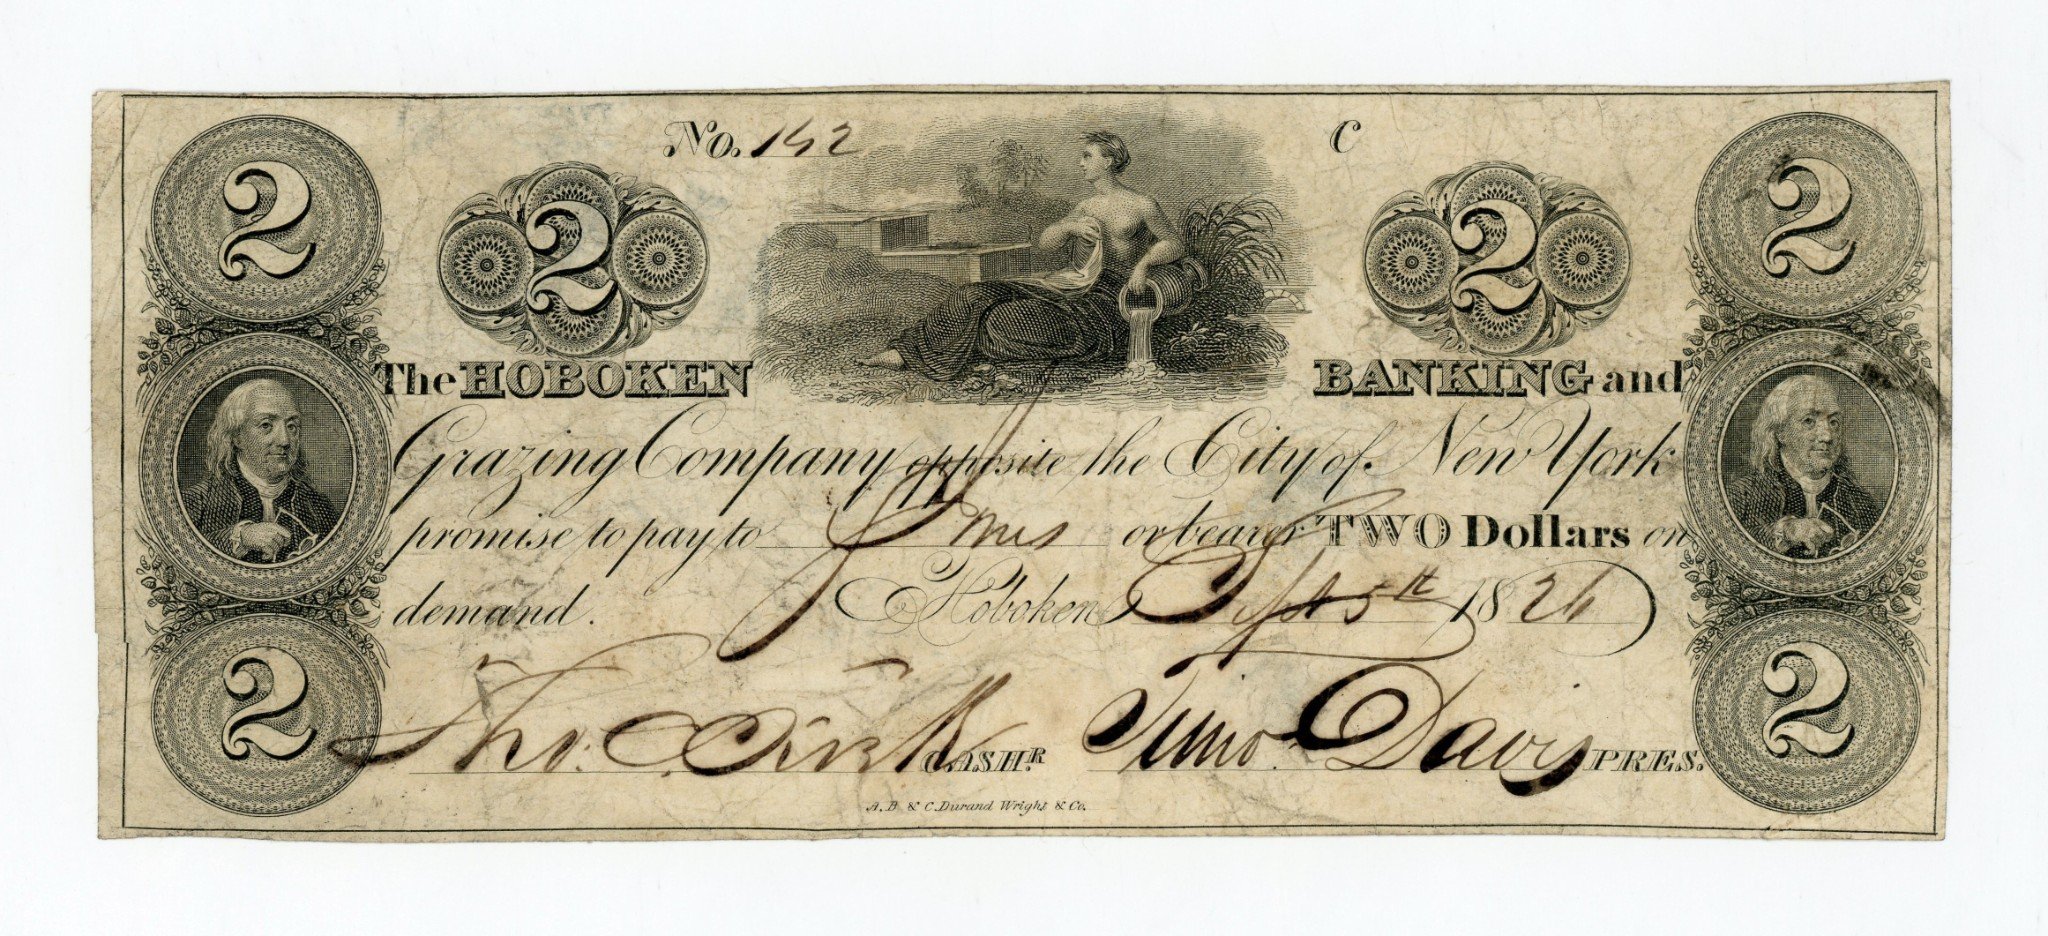 No. 142 C
2 2 2 2
The HOBOKEN BANKING and
Grazing Company opposite the City of New York
promise to pay to or bearer TWO Dollars on
demand. Hoboken Sept 5th 1826
2 2
Tho: CASHR. Timo. Davis PRES.
A. B & C. Durand Wright & Co.